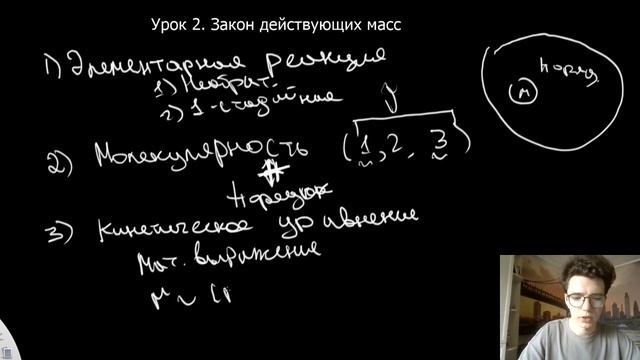 Урок 2. Закон действующих масс
1) Элементарная реакция
1) Необрат.
2) 1-стадийная
2) Молекулярность (1, 2, 3)
Порядок
3) Кинетическое уравнение
Мат. выражение
М